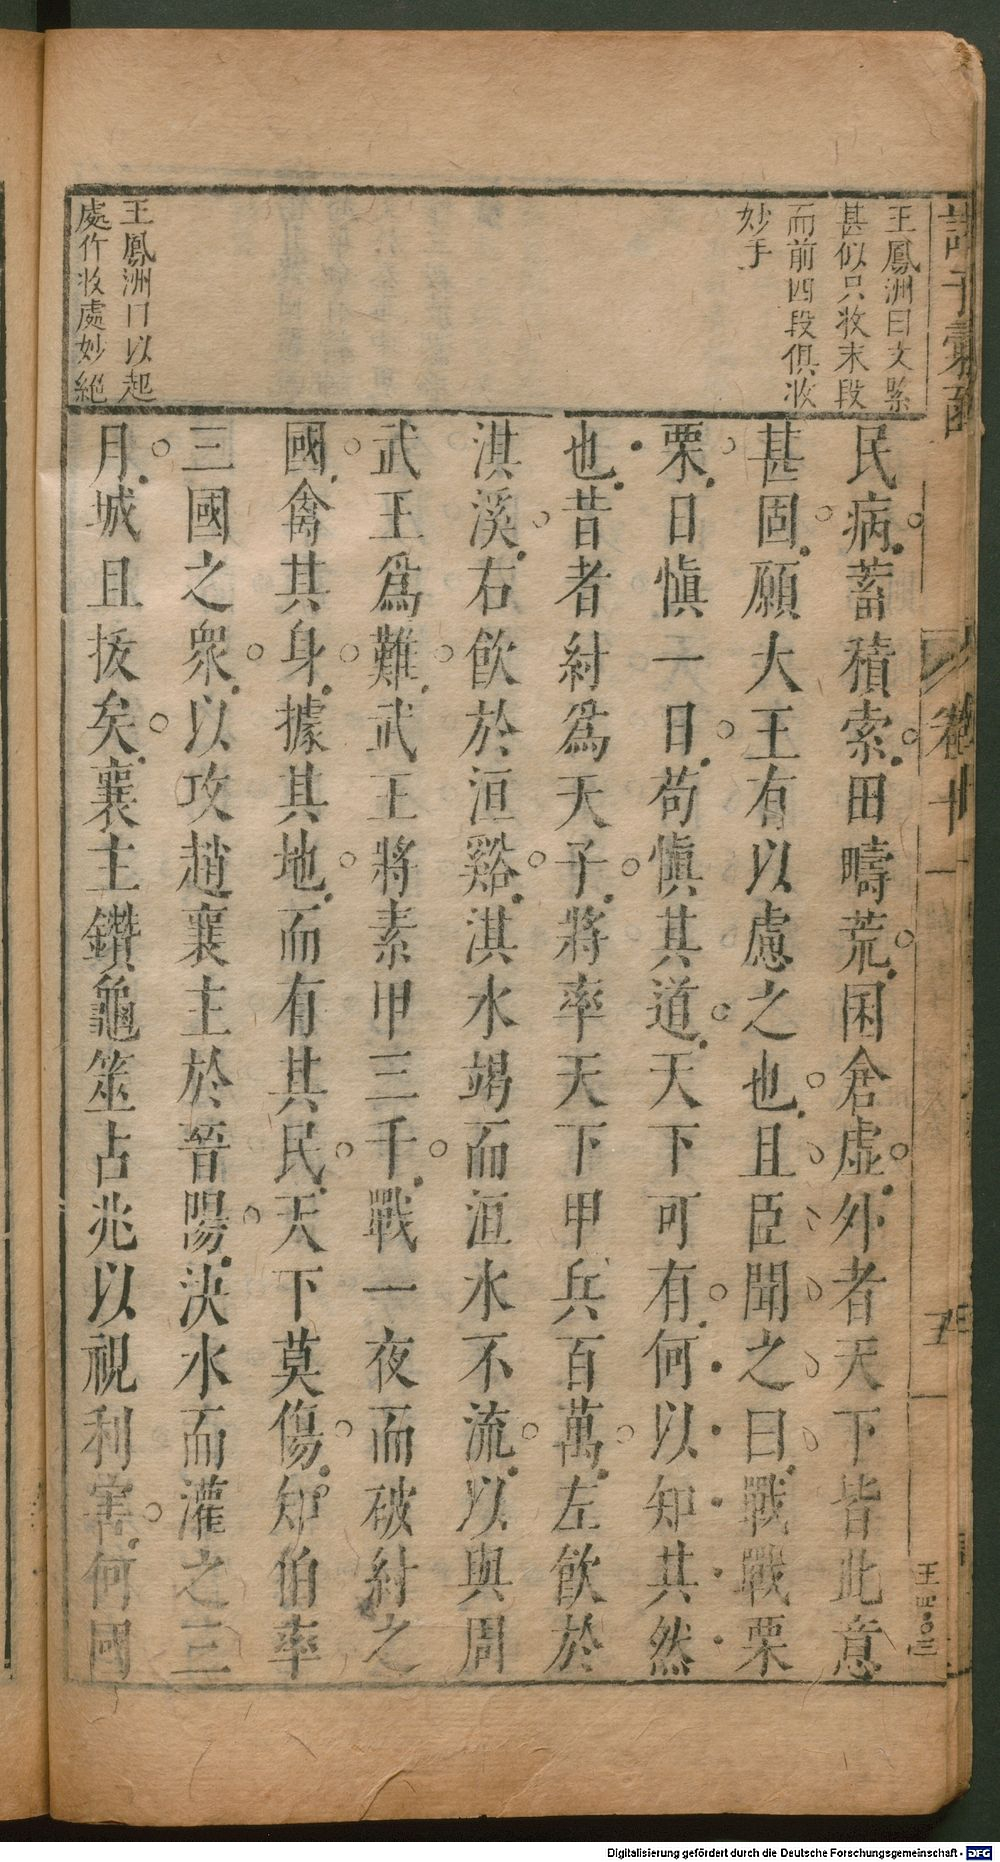 王鳳洲曰文緊
甚似只收末段
而前四段俱收
妙手
王鳳洲曰以起
處作收處妙絕
民病蓄積索田疇荒囷倉虛外者天下皆比意
甚固願大王有以慮之也且臣聞之曰戰戰栗
栗日慎一日苟慎其道天下可有何以知其然
也昔者紂為天子將率天下甲兵百萬左飲於
淇溪右飲於洹谿淇水竭而洹水不流以與周
武王為難武王將素甲三千戰一夜而破紂之
國禽其身據其地而有其民天下莫傷知伯率
三國之眾以攻趙襄主於晉陽決水而灌之三
月城且拔矣襄主鑽龜筮占兆以視利害何國
卷十
五
王四
Digitalisierung gefördert durch die Deutsche Forschungsgemeinschaft - DFG